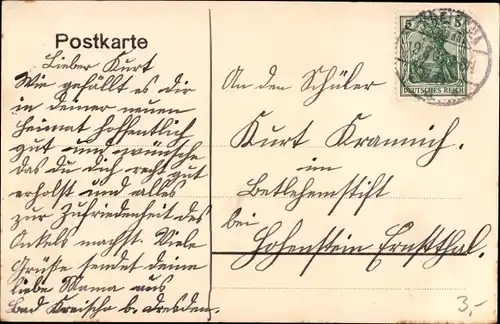 Postkarte
Lieber Kurt
Wie gefällt es dir
in deiner neuen
Heimat hoffentlich
gut und wünsche
das du dich recht gut
erholst und alles
zur Zufriedenheit des
Onkels machst. Viele
Grüße sendet deine
liebe Mama aus
Bad Kreischa b. Dresden.
An den Schüler
Kurt Krannich.
im
Betlehemstift
bei
Hohenstein Ernstthal.
5 5
DEUTSCHES REICH
KREISCHA
3,-